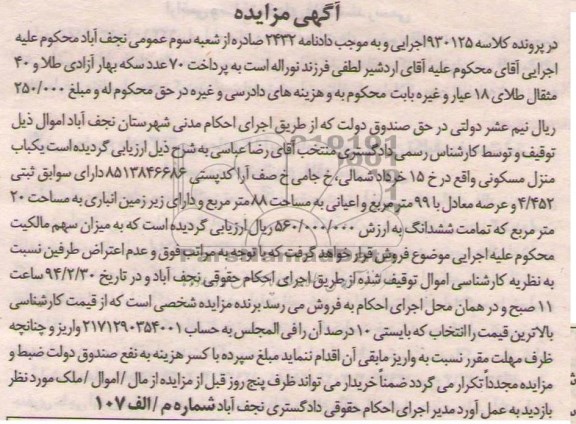 آگهی مزایده
در پرونده کلاسه ۹۳۰۱۲۵اجرایی و به موجب دادنامه ۲۴۳۲ صادره از شعبه سوم عمومی نجف آباد محکوم علیه
اجرایی آقای محکوم علیه آقای اردشیر لطفی فرزند نوراله است به پرداخت ۷۰ عدد سکه بهار آزادی طلا و ۴۰
مثقال طلای ۱۸ عیار و غیره بابت محکوم به و هزینه های دادرسی و غیره در حق محکوم له و مبلغ ۲۵۰/۰۰۰
ریال نیم عشر دولتی در حق صندوق دولت که از طریق اجرای احکام مدنی شهرستان نجف آباد اموال ذیل
توقیف و توسط کارشناس رسمی دادگستری منتخب آقای رضا عباسی به شرح ذیل ارزیابی گردیده است یکباب
منزل مسکونی واقع در خ ۱۵ خرداد شمالی، خ جامی خ صف آرا کدپستی ۸۵۱۳۸۴۶۶۸۶دارای سوابق ثبتی
۴/۴۵۲ و عرصه معادل با ۹۹ متر مربع و اعیانی به مساحت ۸۸ متر مربع و دارای زیر زمین انباری به مساحت ۲۰
متر مربع که تمامت ششدانگ به ارزش ۵۶۰/۰۰۰/۰۰۰ ریال ارزیابی گردیده است که به میزان سهم مالکیت
محکوم علیه اجرایی موضوع فروش قرار خواهد گرفت که با توجه به مراتب فوق و عدم اعتراض طرفین نسبت
به نظریه کارشناسی اموال توقیف شده از طریق اجرای احکام حقوقی نجف آباد و در تاریخ ۹۴/۲/۳۰ ساعت
۱۱ صبح و در همان محل اجرای احکام به فروش می رسد برنده مزایده شخصی است که از قیمت کارشناسی
بالاترین قیمت را انتخاب که بایستی ۱۰ درصد آن را فی المجلس به حساب ۲۱۷۱۲۹۰۳۵۴۰۰۱ واریز و چنانچه
ظرف مهلت مقرر نسبت به واریز مابقی آن اقدام ننماید مبلغ سپرده با کسر هزینه به نفع صندوق دولت ضبط و
مزایده مجدداً تکرار می گردد ضمناً خریدار می تواند ظرف پنج روز قبل از مزایده از مال /اموال /ملک مورد نظر
بازدید به عمل آورد مدیر اجرای احکام حقوقی دادگستری نجف آباد شماره م / الف ۱۰۷